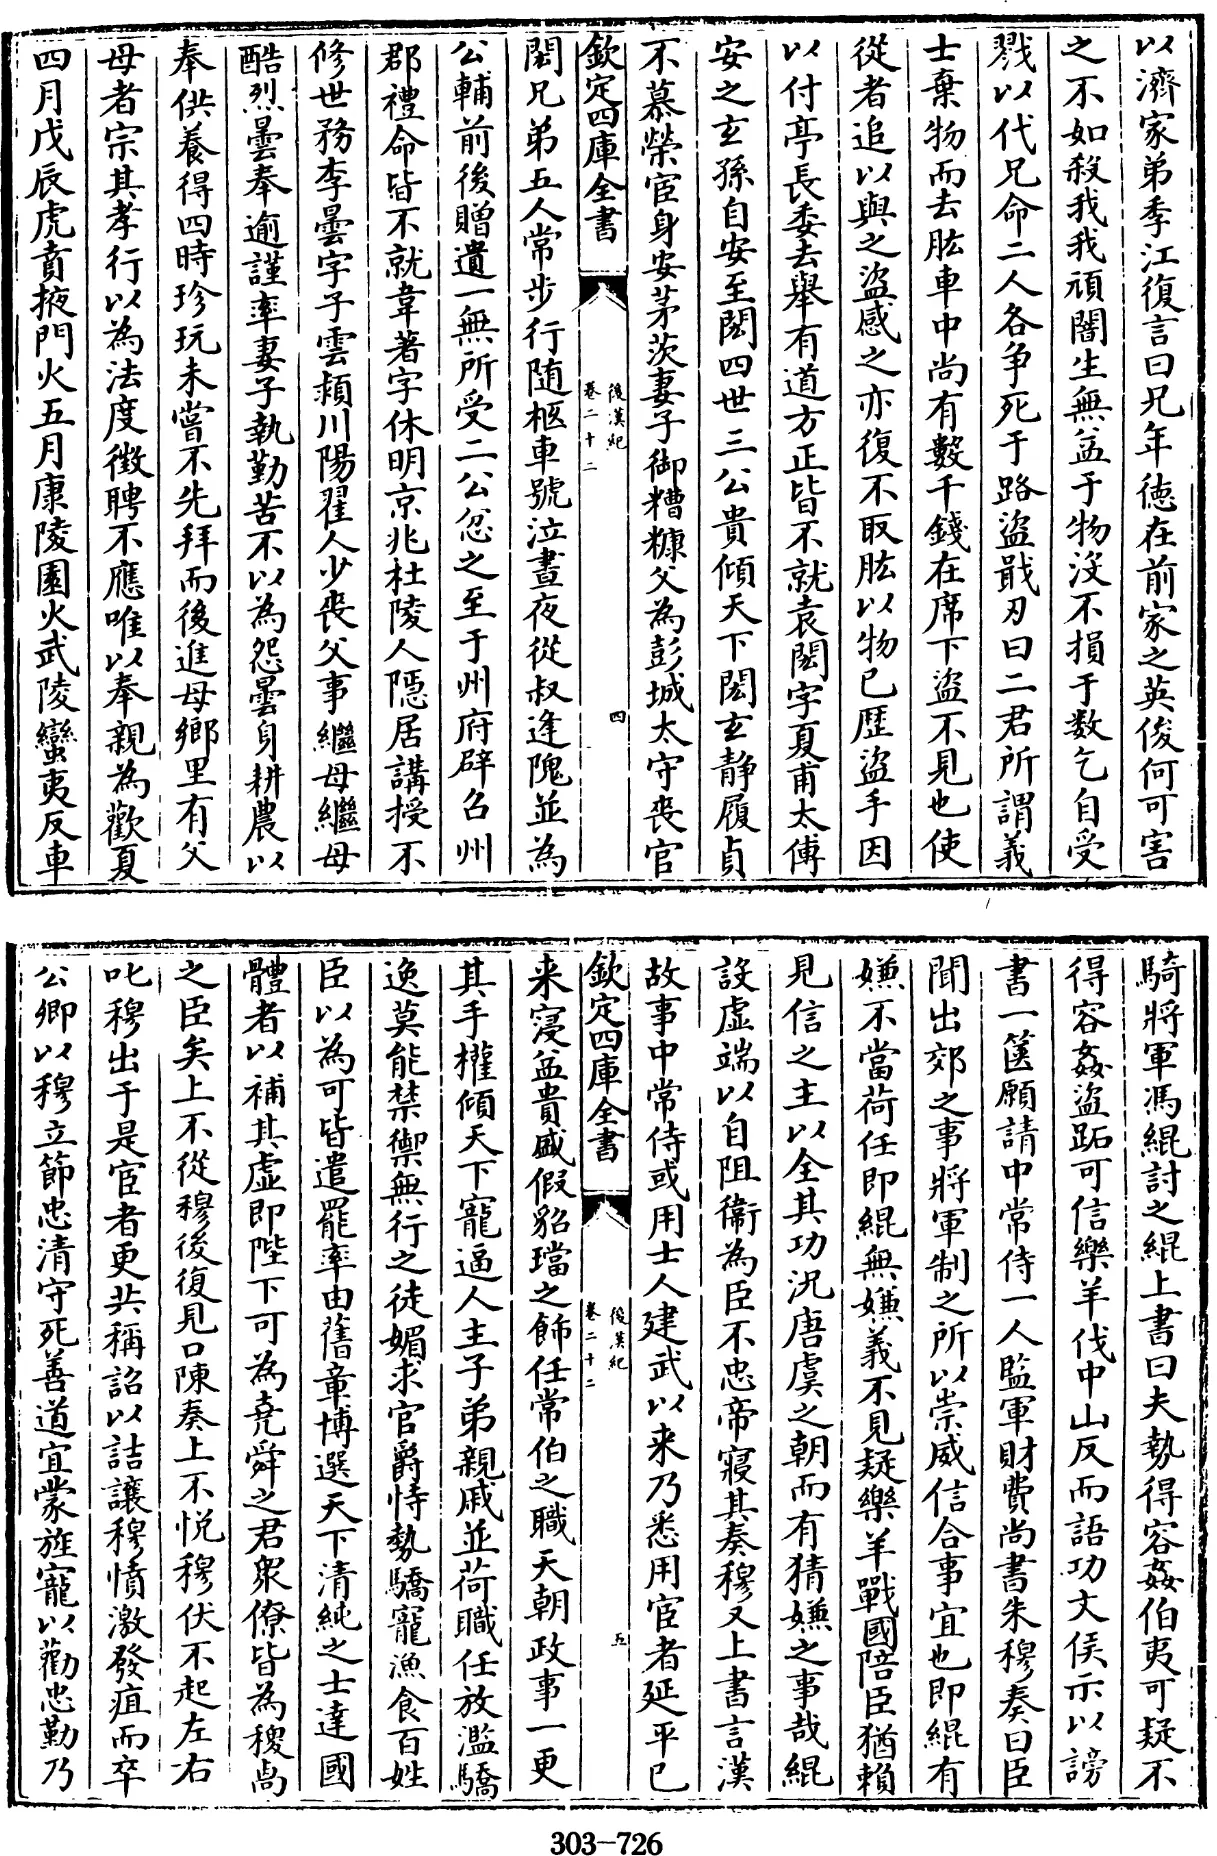 以濟家弟季江復言曰兄年德在前家之英俊何可害
之不如殺我我頑闇生無益于物沒不損于數乞自受
戮以代兄命二人各争死于路盜戢刃曰二君所謂義
士棄物而去肱車中尚有數千錢在席下盜不見也使
從者追以與之盜感之亦復不取肱以物已歴盜手因
以付亭長委去舉有道方正皆不就袁閎字夏甫太傅
安之玄孫自安至閎四世三公貴傾天下閎玄静履貞
不慕榮宦身安茅茨妻子御糟糠父為彭城太守喪官
欽定四庫全書
後漢紀
卷二十二
四
閎兄弟五人常步行随柩車號泣晝夜從叔逢隗並為
公輔前後贈遺一無所受二公忿之至于州府辟召州
郡禮命皆不就韋著字休明京兆杜陵人隱居講授不
修世務李曇字子雲頴川陽翟人少喪父事繼母繼母
酷烈曇奉逾謹率妻子執勤苦不以為怨曇身耕農以
奉供養得四時珍玩未嘗不先拜而後進母鄉里有父
母者宗其孝行以為法度徴聘不應唯以奉親為歡夏
四月戊辰虎賁掖門火五月康陵園火武陵蠻夷反車
騎將軍馮緄討之緄上書曰夫勢得容姦伯夷可疑不
得容姦盜跖可信樂羊伐中山反而語功文侯示以謗
書一篋願請中常侍一人監軍財費尚書朱穆奏曰臣
聞出郊之事將軍制之所以崇威信合事宜也即緄有
嫌不當荷任即緄無嫌義不見疑樂羊戰國陪臣猶賴
見信之主以全其功況唐虞之朝而有猜嫌之事哉緄
設虛端以自阻衞為臣不忠帝寢其奏穆又上書言漢
故事中常侍或用士人建武以来乃悉用宦者延平已
欽定四庫全書
後漢紀
卷二十二
五
来寖益貴盛假貂璫之飾任常伯之職天朝政事一更
其手權傾天下寵逼人主子弟親戚並荷職任放濫驕
逸莫能禁禦無行之徒媚求官爵恃勢驕寵漁食百姓
臣以為可皆遣罷率由舊章博選天下清純之士達國
體者以補其虛即陛下可為堯舜之君衆僚皆為稷卨
之臣矣上不從穆後復見口陳奏上不悦穆伏不起左右
叱穆出于是宦者更共稱詔以詰讓穆憤激發疽而卒
公卿以穆立節忠清守死善道宜蒙旌寵以勸忠勤乃
303-726